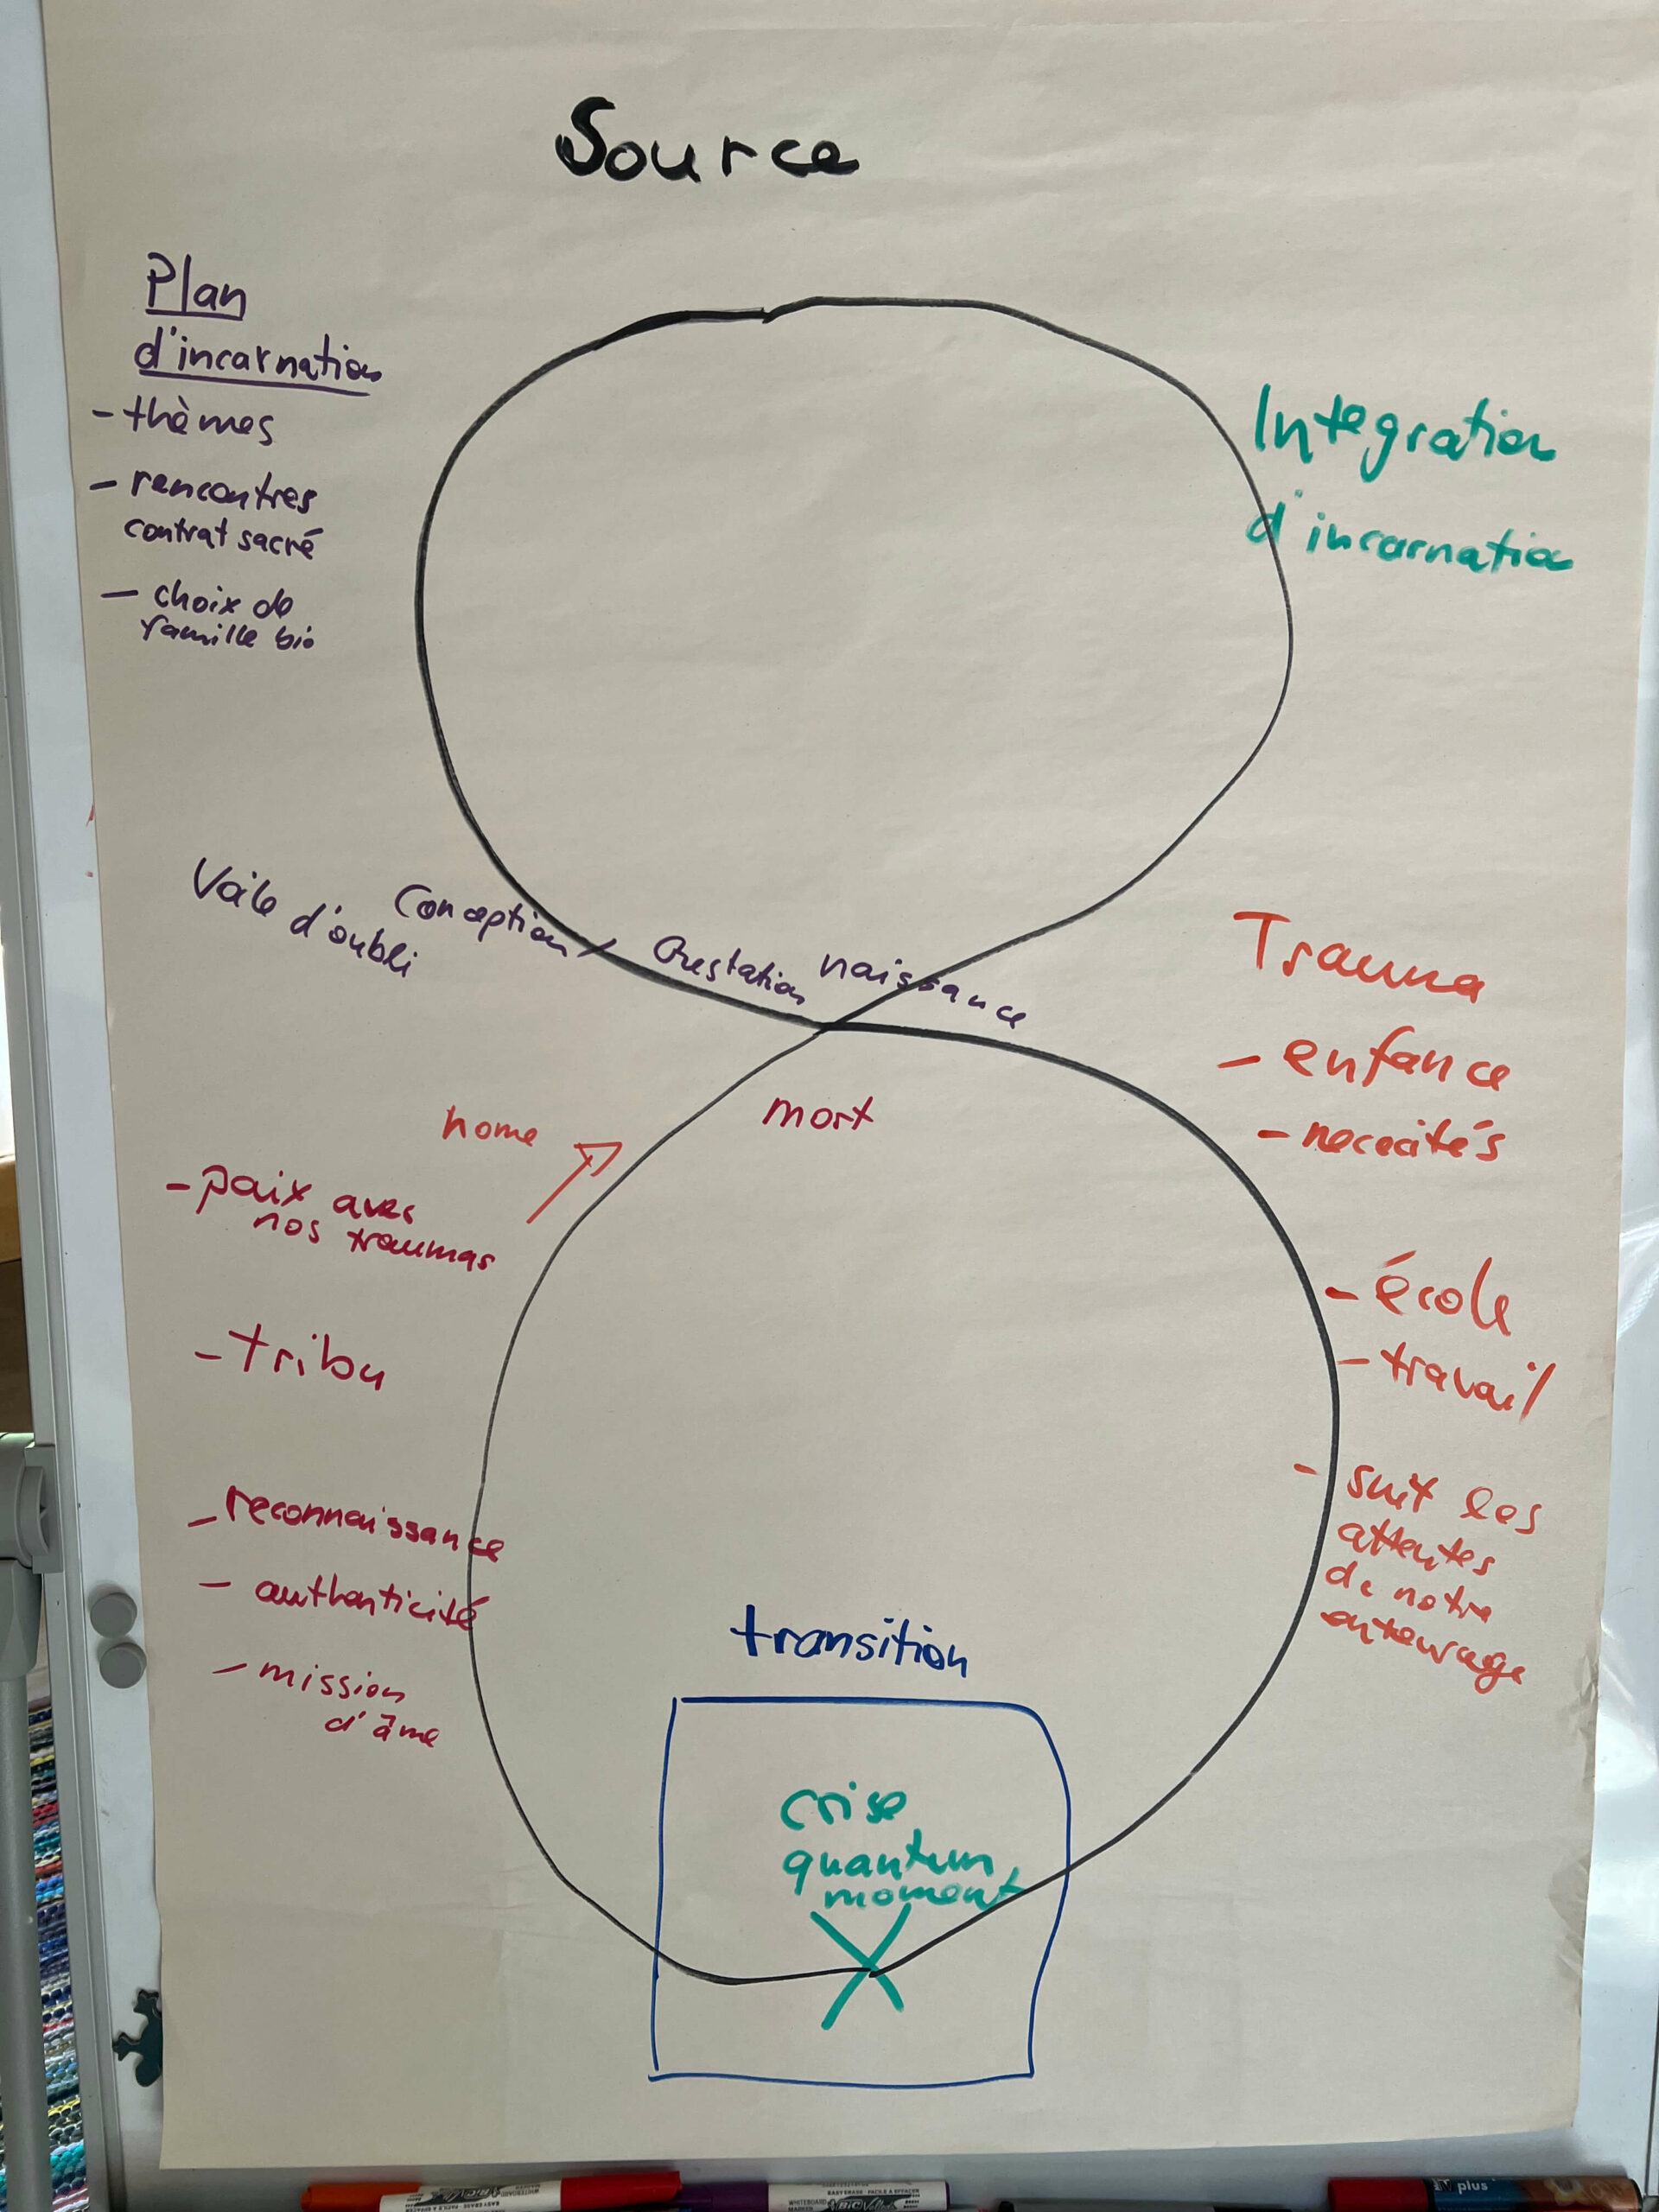 Source
Plan
d'incarnation
- thèmes
- rencontres
contrat sacré
- choix de
famille bio
Integration
d'incarnation
Voile d'oubli
Conception / Gestation naissance
mort
Trauma
- enfance
- nececités
- école
- travail
- suit les
attentes
de notre
entourage
home
- paix avec
nos traumas
- tribu
- reconnaissance
- authenticité
- mission
d'âme
transition
crise
quantum
moment
plus